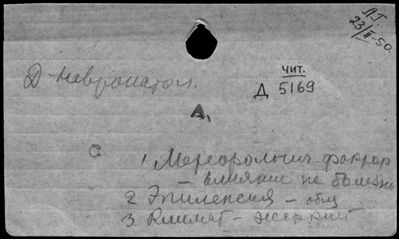 ЛГ
23/II-50.
Д-невропатол.
чит.
Д 5169
А,
С
1 Метеорологич. фактор
- влияние на болезни
2. Эпилепсия - общ
3. Климат -